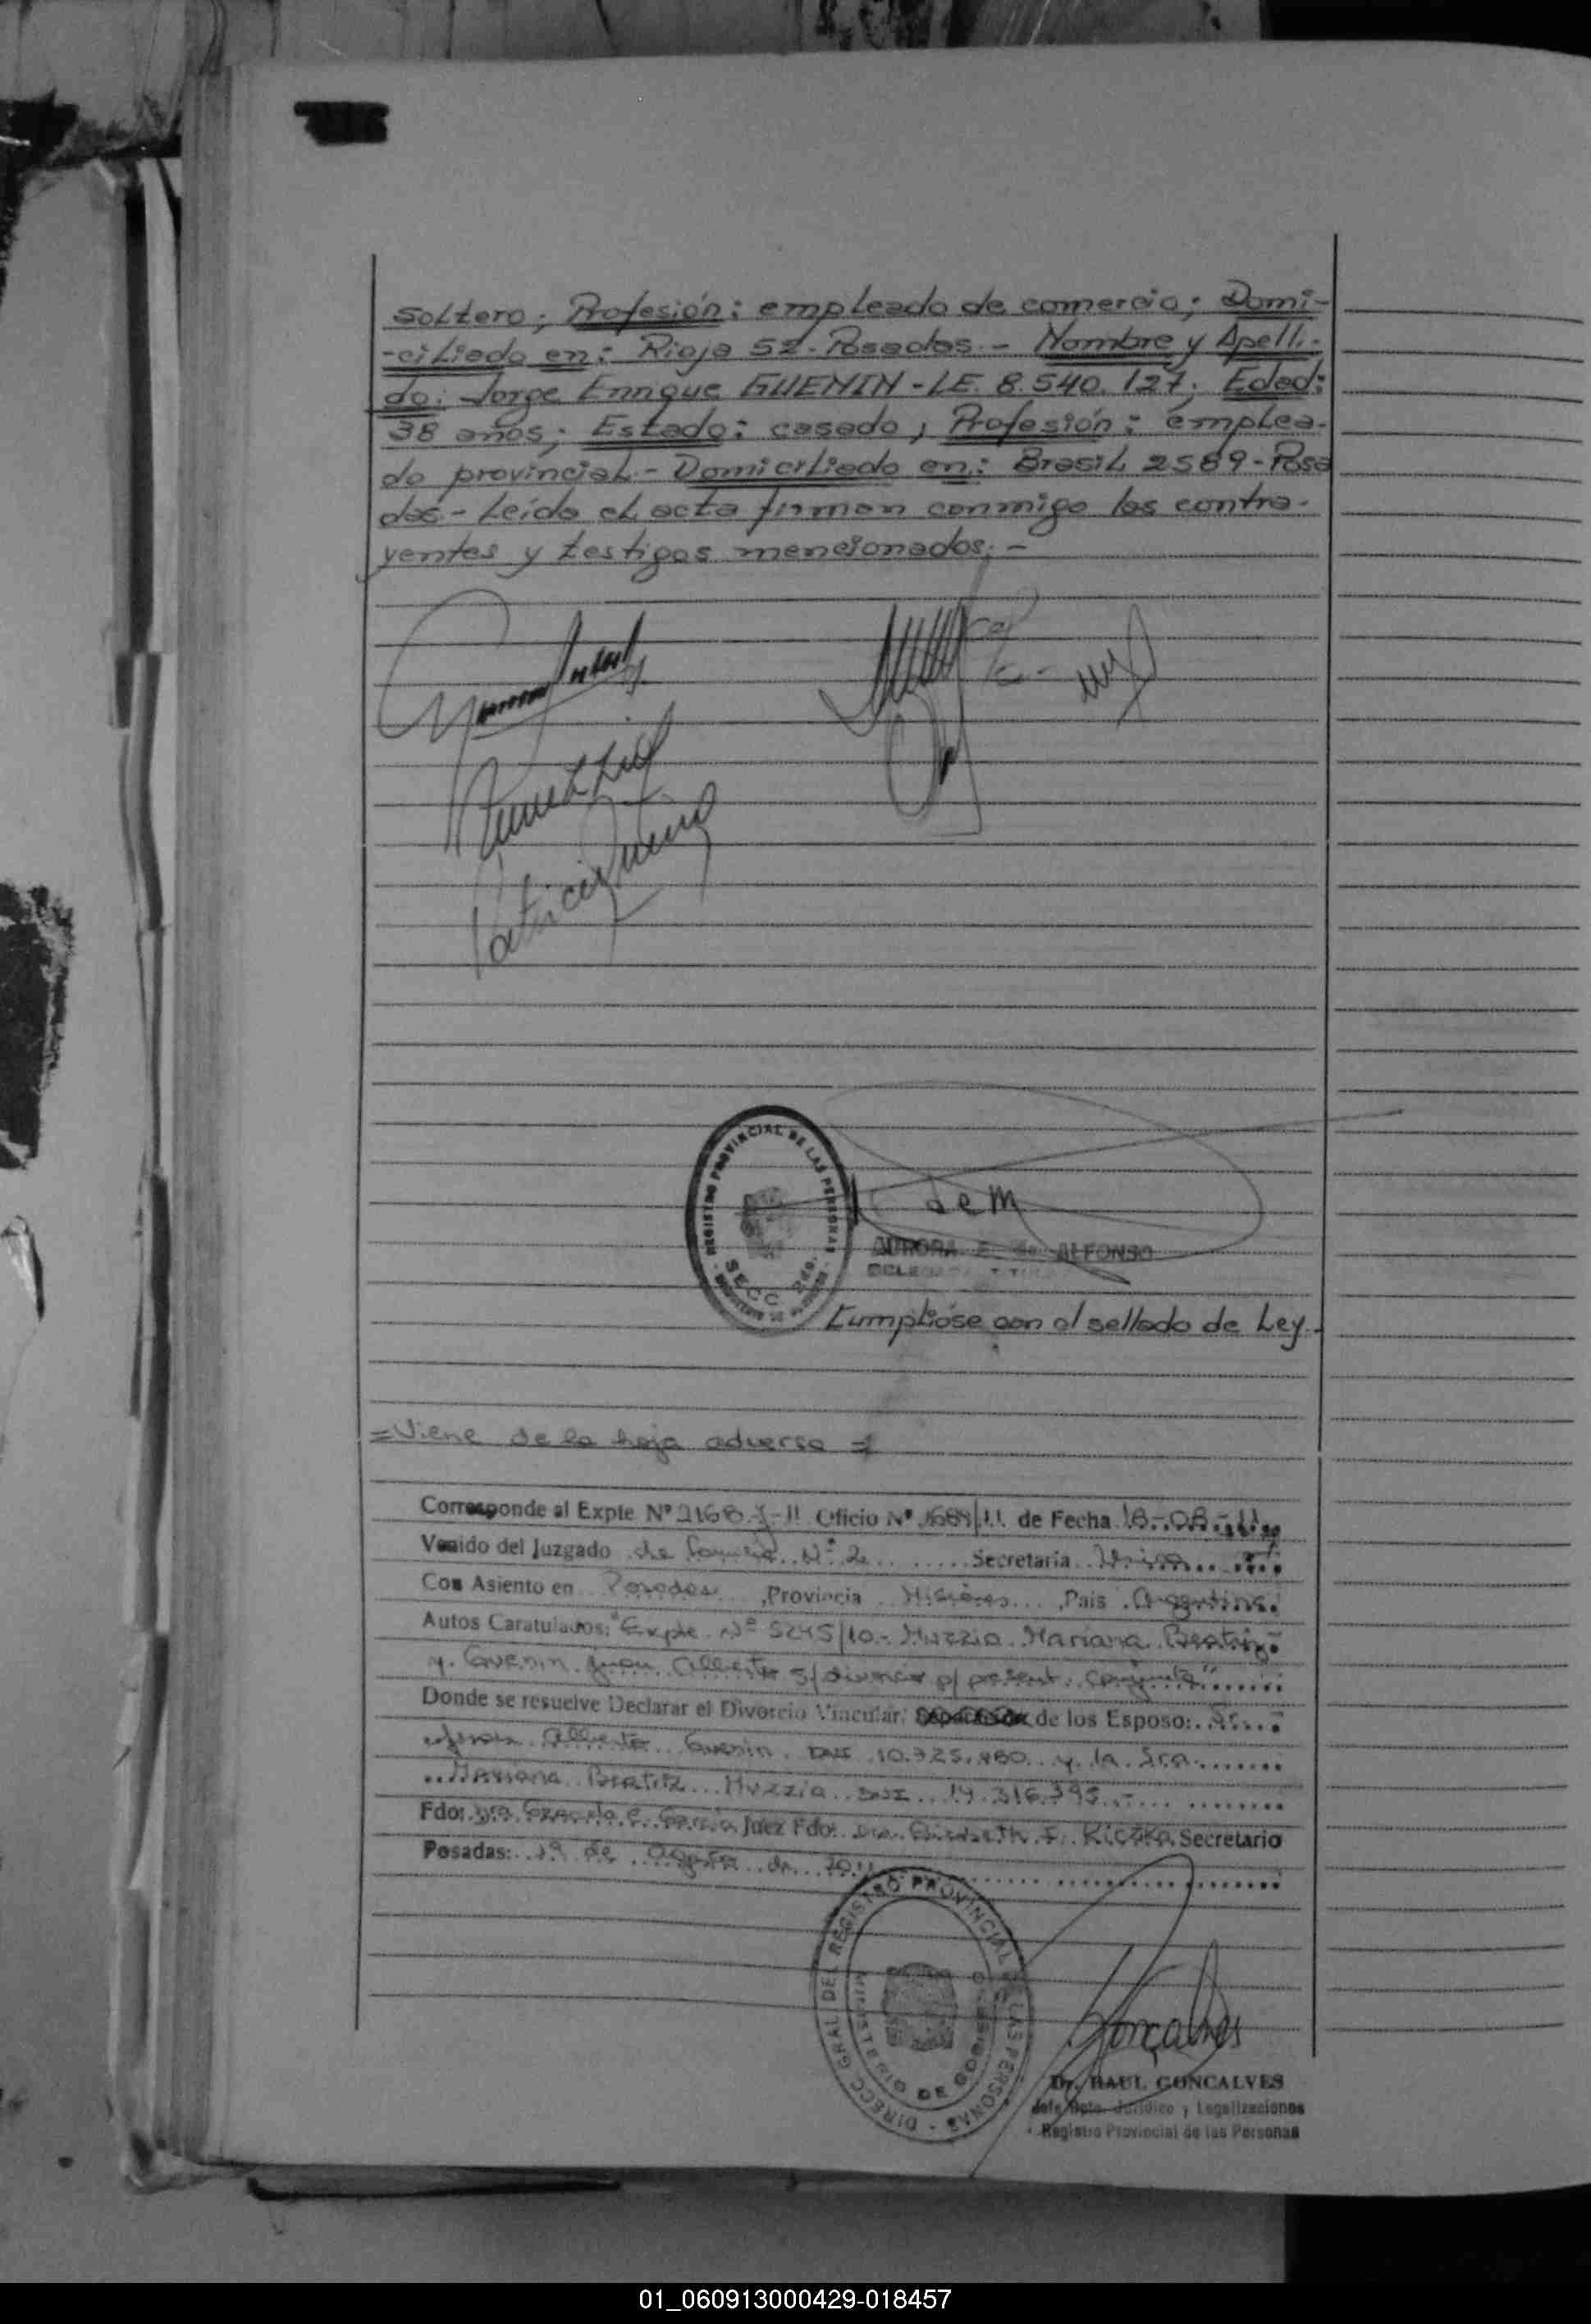 soltero; Profesión: empleado de comercio; Domi-
-ciliado en: Rioja 52-Posadas.- Nombre y Apelli-
do: Jorge Enrique GUENIN-LE. 8.540.127; Edad:
38 años; Estado: casado; Profesión: emplea-
do provincial- Domiciliado en: Brasil 2589-Posa
das.- Leída el acta firman conmigo los contra-
yentes y testigos mencionados.-
REGISTRO PROVINCIAL DE LAS PERSONAS
SECC. 2da.
AURORA E. de ALFONSO
Cumplióse con el sellado de Ley.-
=Viene de la hoja adversa =
Corresponde al Expte Nº 2168-J-11 Oficio Nº 1684/11 de Fecha 18-08-11
Venido del Juzgado de Familia Nº 2 Secretaria Unica
Con Asiento en Posadas, Provincia Misiones, Pais Argentina.
Autos Caratulados: "Expte Nº 5245/10.- Muzzio Mariana Beatriz
y Guenin Juan Alberto s/divorcio p/ present. conjunta"
Donde se resuelve Declarar el Divorcio Vincular, Separación de los Esposo: Sr.
Juan Alberto Guenin DNI 10.725.980 y la Sra.
Mariana Beatriz Muzzio DNI 14.316.395.-
Fdo: Dra. Graciela C. García Juez Fdo: Dra. Elizabeth F. Kiczka Secretario
Posadas: 19 de Agosto de 2011
DIRECC GRAL DEL REGISTRO PROVINCIAL DE LAS PERSONAS
MINISTERIO DE GOBIERNO
Goncalves
Dr. RAUL GONCALVES
Jefe Dpto. Jurídico y Legalizaciones
Registro Provincial de las Personas
01_060913000429-018457